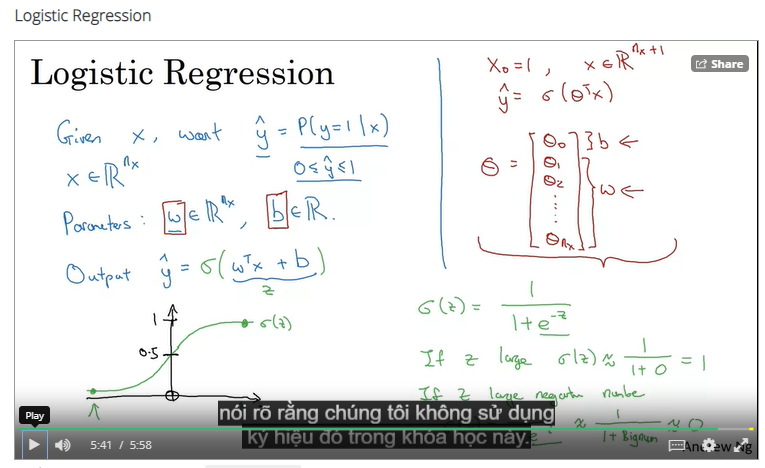 Logistic Regression
Share
Logistic Regression
Given x, want ŷ = P(y=1|x)
0≤ŷ≤1
x ∈ ℝⁿˣ
Parameters: w ∈ ℝⁿˣ, b ∈ ℝ.
Output ŷ = σ(wᵀx + b)
z
1
0.5
σ(z)
X₀=1, x ∈ ℝⁿˣ⁺¹
ŷ = σ(θᵀx)
θ = [θ₀ θ₁ θ₂ ⋮ θₙₓ] }b ← }w ←
σ(z) = 1/(1+e⁻ᶻ)
If z large σ(z) ≈ 1/(1+0) = 1
If z large negative number
≈ 1/(1+Bignum) ≈ 0
nói rõ rằng chúng tôi không sử dụng
ký hiệu đó trong khóa học này.
Play
5:41 / 5:58
Andrew Ng